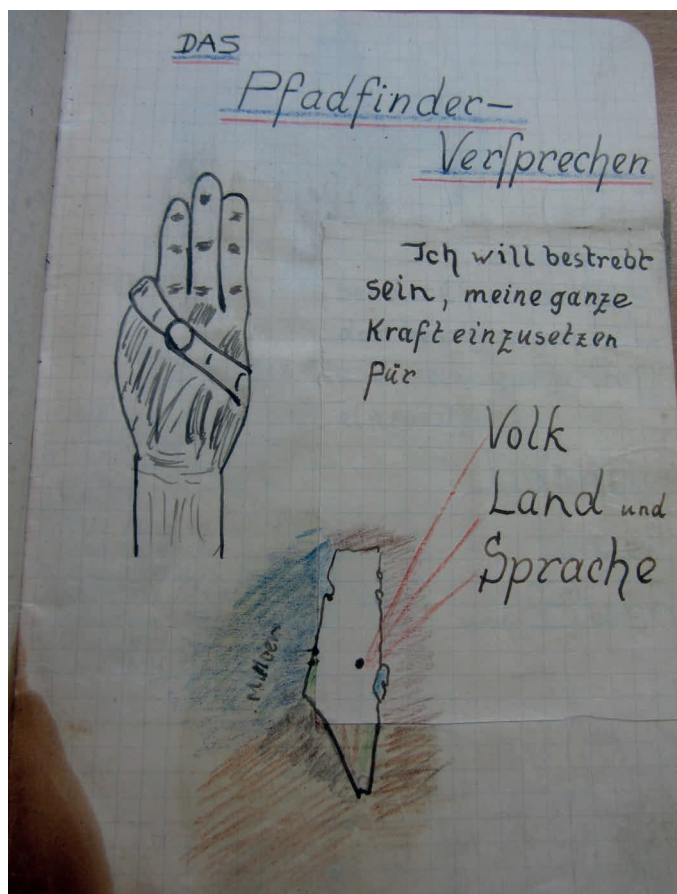 DAS
Pfadfinder-
Versprechen
Ich will bestrebt
sein, meine ganze
Kraft einzusetzen
für
Volk
Land und
Sprache
M. Meer